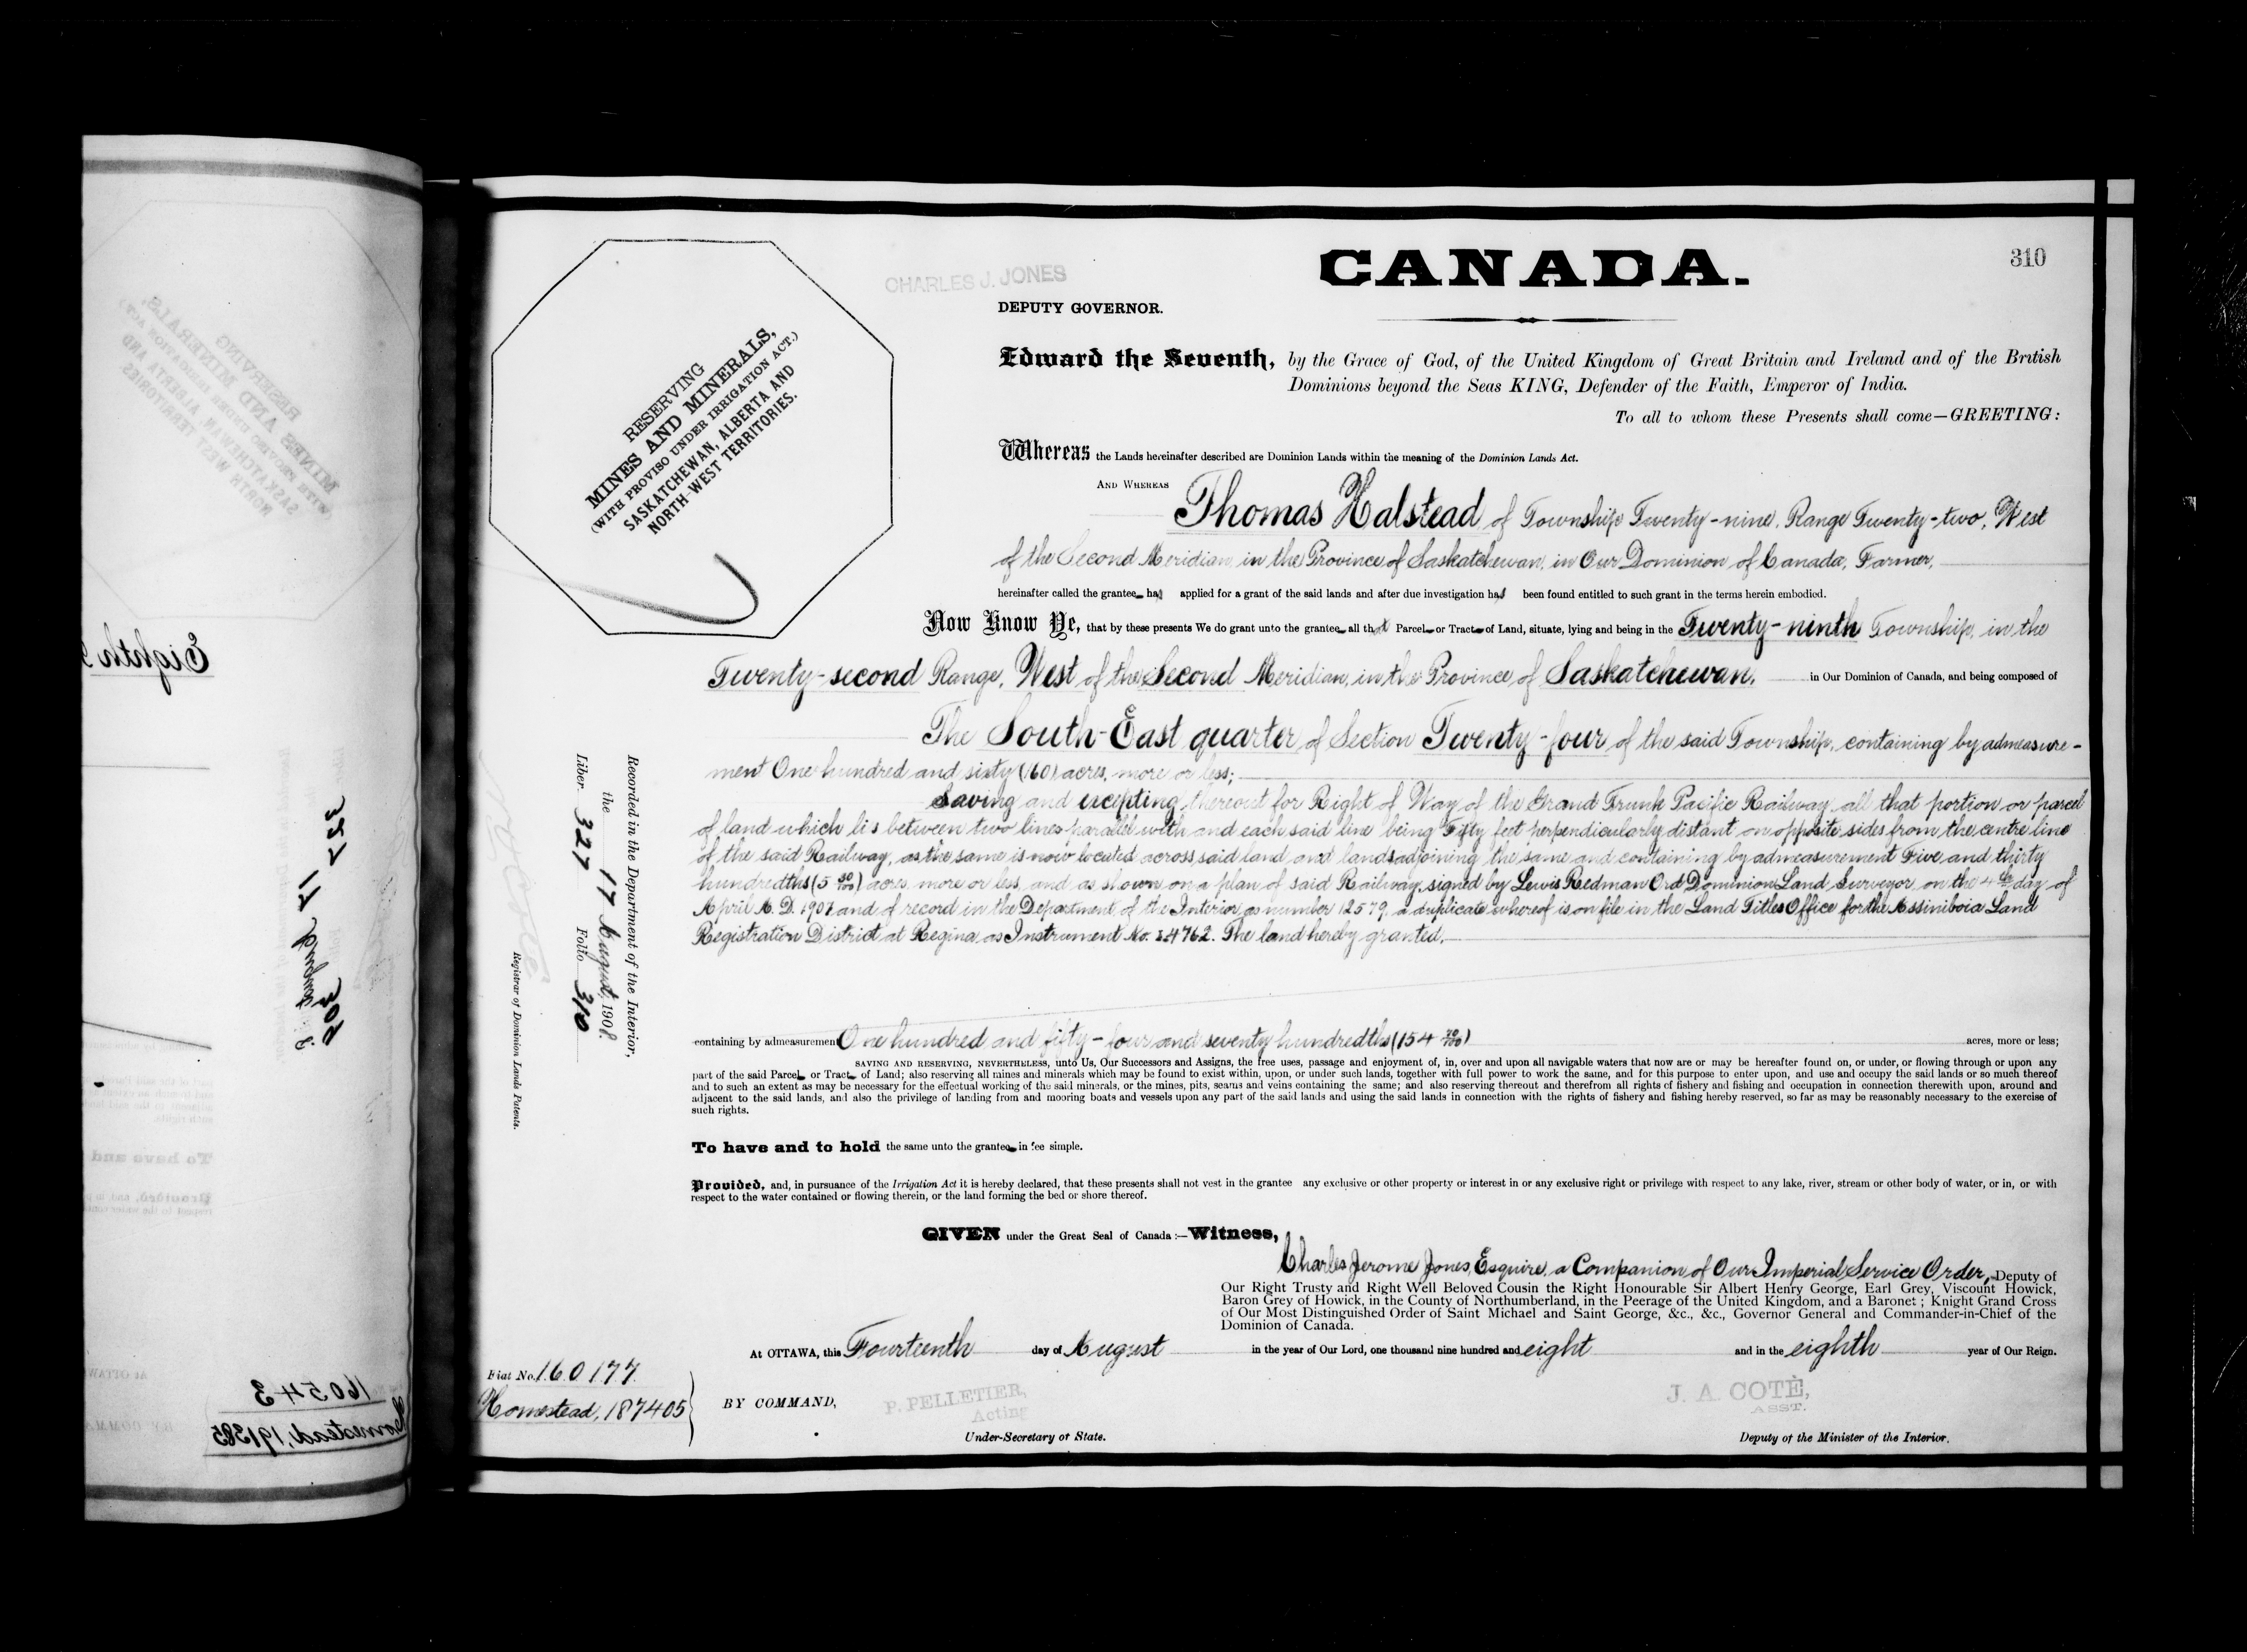 310
CHARLES J. JONES
CANADA.
DEPUTY GOVERNOR.
Edward the Seventh, by the Grace of God, of the United Kingdom of Great Britain and Ireland and of the British
Dominions beyond the Seas KING, Defender of the Faith, Emperor of India.
To all to whom these Presents shall come—GREETING:
RESERVING
MINES AND MINERALS,
(WITH PROVISO UNDER IRRIGATION ACT.)
SASKATCHEWAN, ALBERTA AND
NORTH-WEST TERRITORIES.
Whereas the Lands hereinafter described are Dominion Lands within the meaning of the Dominion Lands Act.
AND WHEREAS Thomas Halstead of Township Twenty-nine, Range Twenty-two, West
of the Second Meridian, in the Province of Saskatchewan, in Our Dominion of Canada, Farmer,
hereinafter called the grantee has applied for a grant of the said lands and after due investigation has been found entitled to such grant in the terms herein embodied.
Now Know Ye, that by these presents We do grant unto the grantee all that Parcel or Tract of Land, situate, lying and being in the Twenty-ninth Township, in the
Twenty-second Range, West of the Second Meridian, in the Province of Saskatchewan, in Our Dominion of Canada, and being composed of
The South-East quarter of Section Twenty-four of the said Township, containing by admeasure-
ment One hundred and sixty (160) acres, more or less;
Saving and excepting thereout for Right of Way of the Grand Trunk Pacific Railway all that portion or parcel
of land which lis between two lines parallel with and each said line being Fifty feet perpendicularly distant on opposite sides from the centre line
of the said Railway, as the same is now located across said land and lands adjoining the same and containing by admeasurement Five and thirty
hundredths (5 30/100) acres, more or less, and as shown on a plan of said Railway, signed by Lewis Redman Ord Dominion Land Surveyor, on the 4th day of
April A. D. 1907 and of record in the Department of the Interior as number 12579, a duplicate whereof is on file in the Land Titles Office for the Assiniboia Land
Registration District at Regina as Instrument No. 4762. The land hereby granted,
containing by admeasurement One hundred and fifty-four and seventy hundredths (154 70/100) acres, more or less;
SAVING AND RESERVING, NEVERTHELESS, unto Us, Our Successors and Assigns, the free uses, passage and enjoyment of, in, over and upon all navigable waters that now are or may be hereafter found on, or under, or flowing through or upon any
part of the said Parcel or Tract of Land; also reserving all mines and minerals which may be found to exist within, upon, or under such lands, together with full power to work the same, and for this purpose to enter upon, and use and occupy the said lands or so much thereof
and to such an extent as may be necessary for the effectual working of the said minerals, or the mines, pits, seams and veins containing the same; and also reserving thereout and therefrom all rights of fishery and fishing and occupation in connection therewith upon, around and
adjacent to the said lands, and also the privilege of landing from and mooring boats and vessels upon any part of the said lands and using the said lands in connection with the rights of fishery and fishing hereby reserved, so far as may be reasonably necessary to the exercise of
such rights.
To have and to hold the same unto the grantee in fee simple.
Provided, and, in pursuance of the Irrigation Act it is hereby declared, that these presents shall not vest in the grantee any exclusive or other property or interest in or any exclusive right or privilege with respect to any lake, river, stream or other body of water, or in, or with
respect to the water contained or flowing therein, or the land forming the bed or shore thereof.
GIVEN under the Great Seal of Canada:—Witness,
Charles Jerome Jones, Esquire, a Companion of Our Imperial Service Order, Deputy of
Our Right Trusty and Right Well Beloved Cousin the Right Honourable Sir Albert Henry George, Earl Grey, Viscount Howick,
Baron Grey of Howick, in the County of Northumberland, in the Peerage of the United Kingdom, and a Baronet; Knight Grand Cross
of Our Most Distinguished Order of Saint Michael and Saint George, &c., &c., Governor General and Commander-in-Chief of the
Dominion of Canada.
At OTTAWA, this Fourteenth day of August in the year of Our Lord, one thousand nine hundred and eight and in the eighth year of Our Reign.
BY COMMAND,
P. PELLETIER,
Acting
Under-Secretary of State.
J. A. COTÉ,
ASST.
Deputy of the Minister of the Interior.
Fiat No. 160177.
Homestead, 187405
Recorded in the Department of the Interior,
the 17 August, 1908.
Liber 327 Folio 310
Registrar of Dominion Lands Patents.
160543
Homestead, 191585